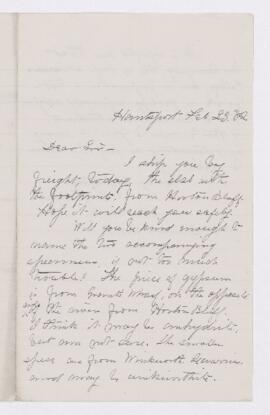 Hantsport Feb 23. /82
Dear Sir –
I ship you by
freight, to day, the slab with
the footprints from Horton Bluff.
Hope it will reach you safely.
Will you be kind enough to
name the two accompanying
specimens, if not too much
trouble? The piece of gypsum
is from on the opposite
side of the river from Horton Bluff.
I think it may be anhydrite,
but am not sure. The smaller
spec are from Wentworth
and may be